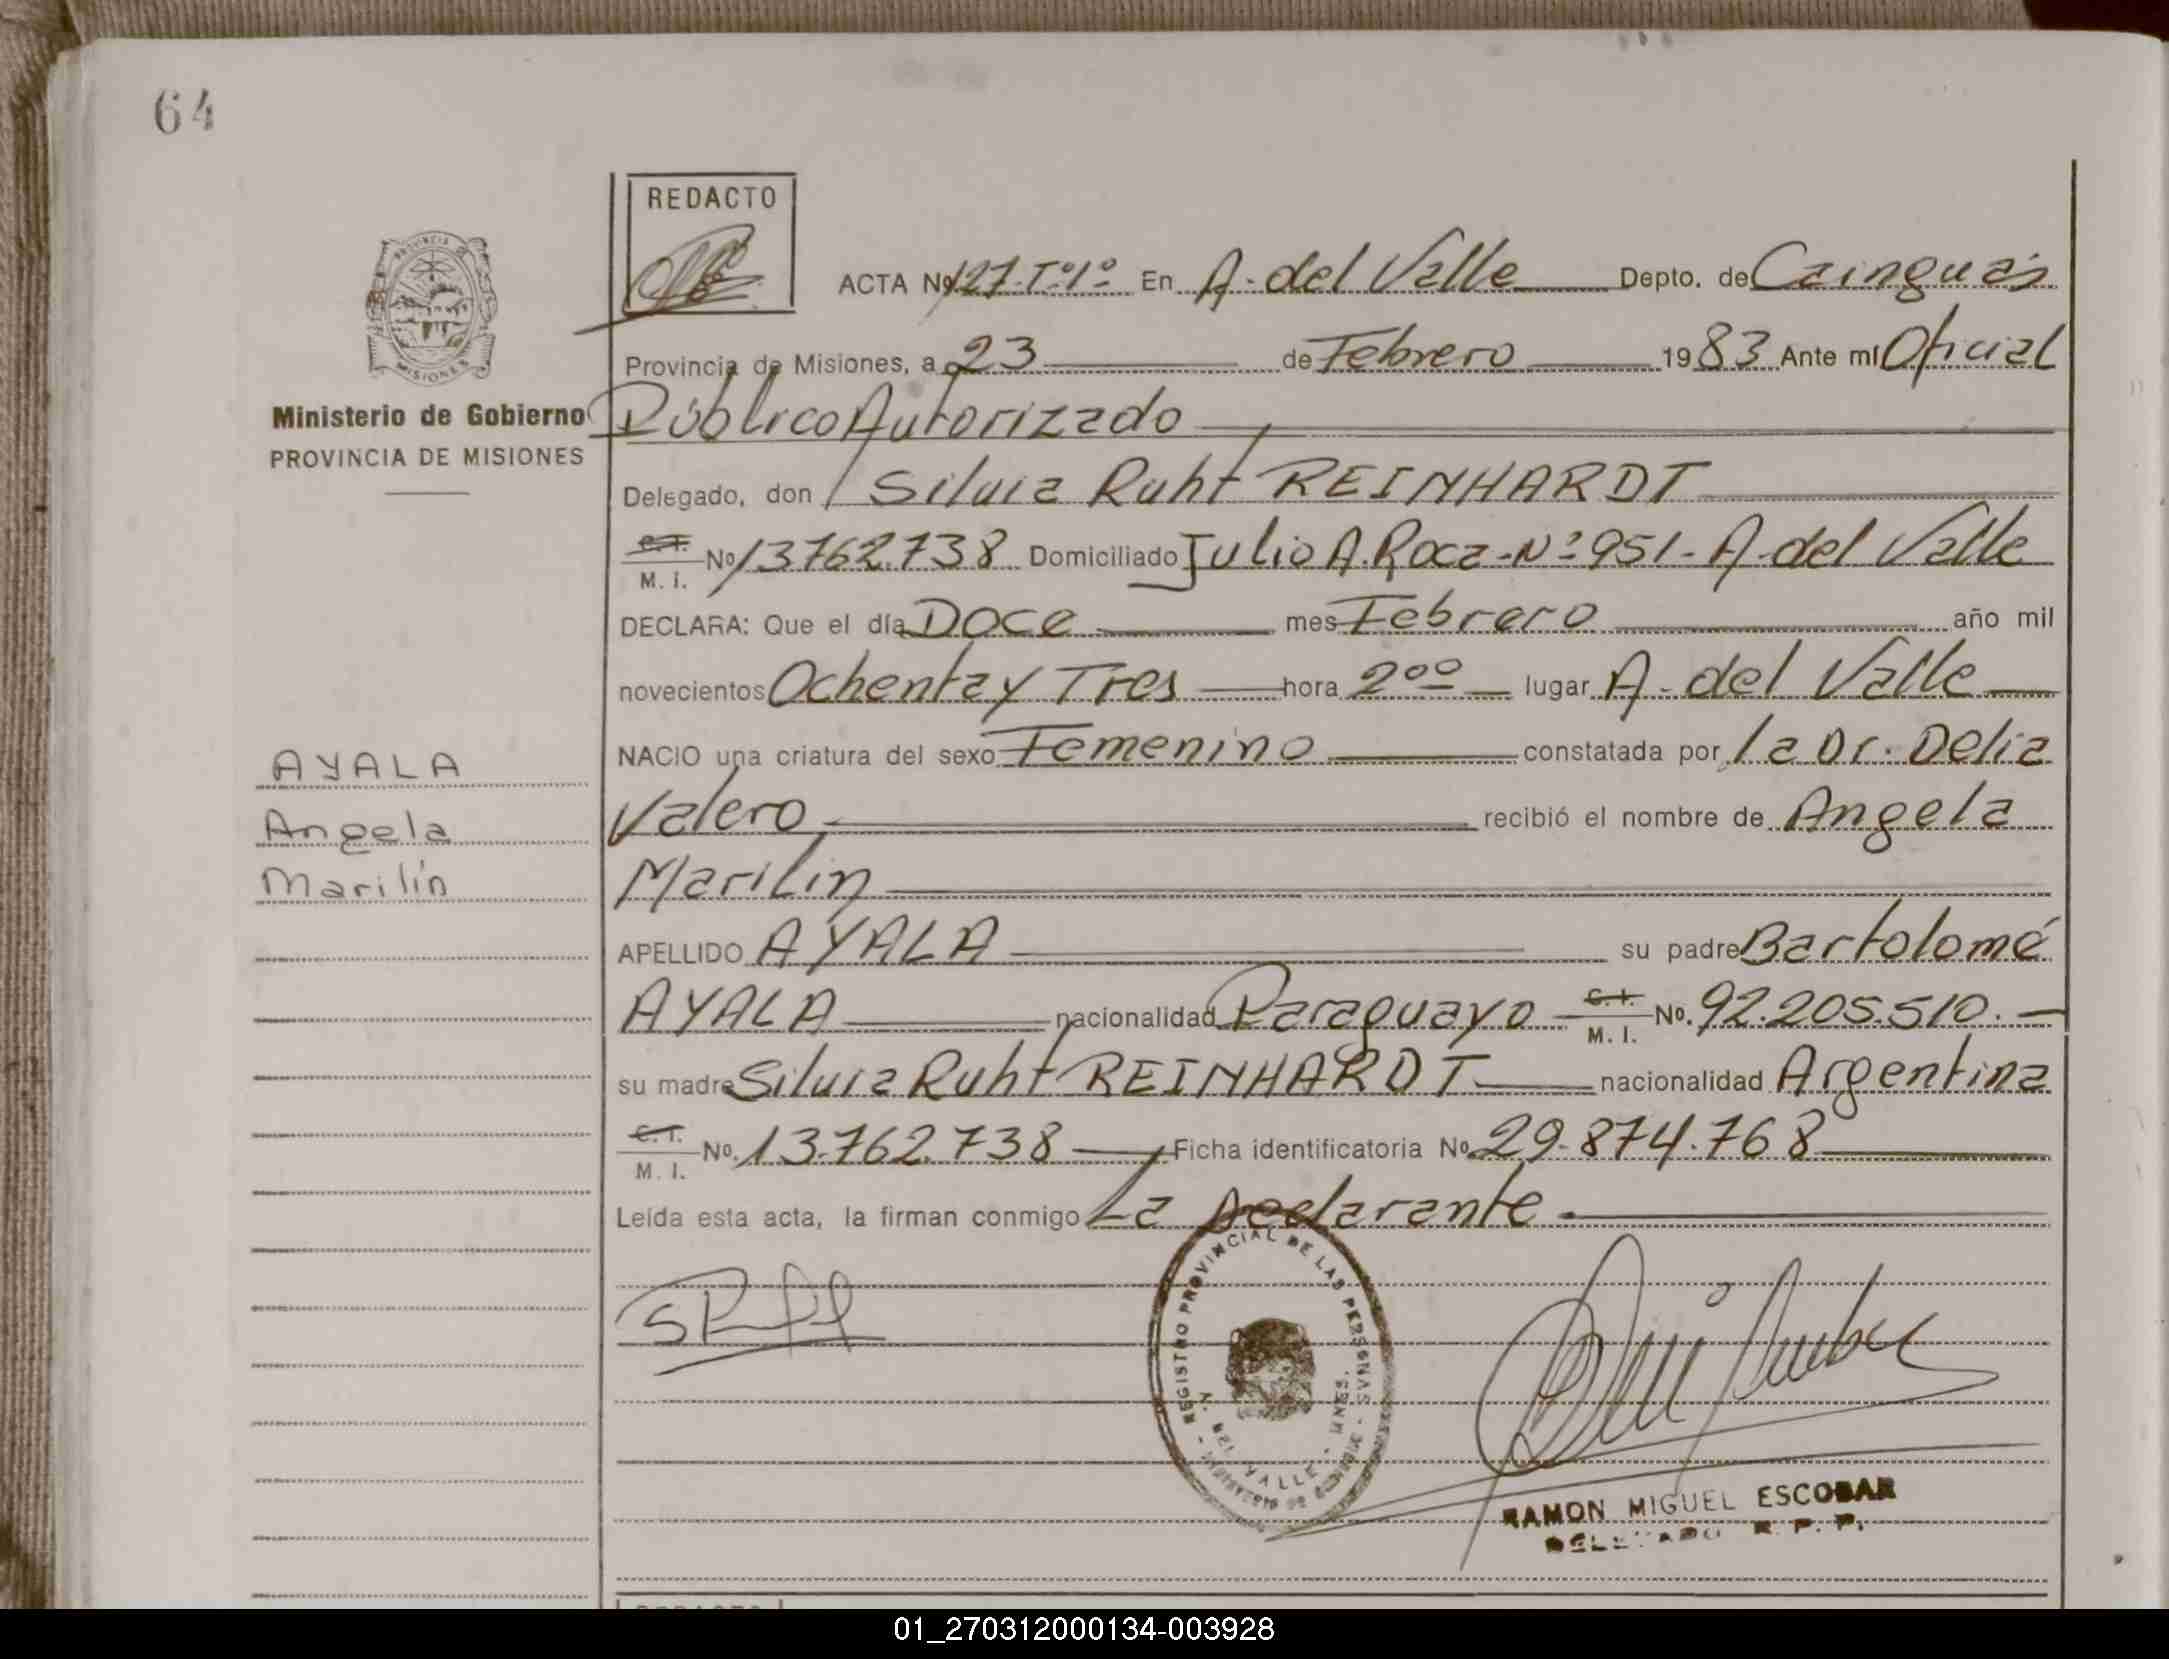 64
REDACTO
PROVINCIA DE
MISIONES
Ministerio de Gobierno
PROVINCIA DE MISIONES
ACTA Nº 127-Tº1º En A. del Valle Depto. de Cainguás
Provincia de Misiones, a 23 de Febrero 1983 Ante mí Oficial
Público Autorizado
Delegado, don Silvia Ruht REINHARDT
C.I. M. I. Nº 13762.738 Domiciliado Julio A. Roca-Nº 951-A-del Valle
DECLARA: Que el día Doce mes Febrero año mil
novecientos Ochenta y Tres hora 2ºº lugar A. del Valle
NACIO una criatura del sexo Femenino constatada por la Dr. Delia
Valero recibió el nombre de Angela
Marilin
APELLIDO AYALA su padre Bartolomé
AYALA nacionalidad Paraguayo C.I. M. I. Nº. 92.205.510.
su madre Silvia Ruht REINHARDT nacionalidad Argentina
C.I. M. I. Nº. 13.762.738 Ficha identificatoria Nº 29.874.768
Leída esta acta, la firman conmigo La Declarante
AYALA
Angela
Marilín
REGISTRO PROVINCIAL DE LAS PERSONAS
VALLE - MNES.
RAMON MIGUEL ESCOBAR
DELEGADO R. P. P.
REDACTO
01_270312000134-003928